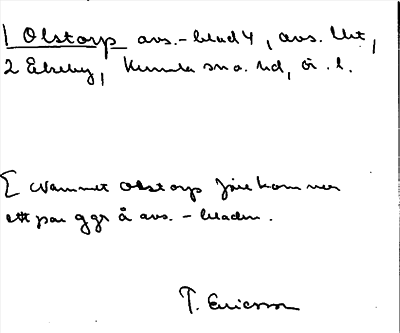 1 Olstorp avs.-blad 4, avs. Utt,
2 Ekeby, Kumla sn o. hd, ög. l.
[ Namnet Olstorp förekommer
ett par ggr å avs.-bladen.
T. Ericsson